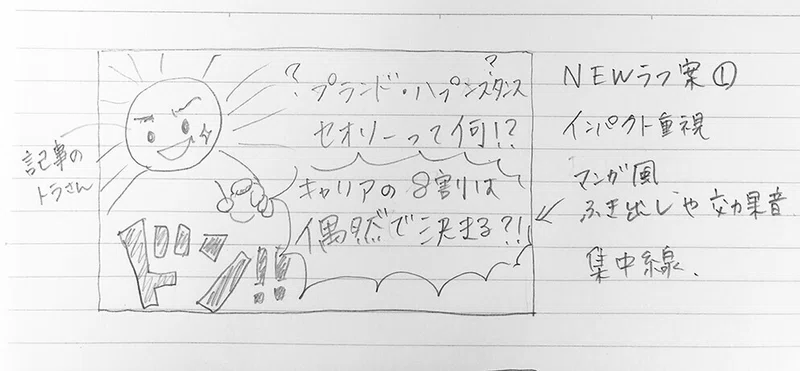 NEWラフ案①
インパクト重視
マンガ風
ふき出しや効果音
集中線、
記事の
トラさん
? ?
プランド・ハプンスタンス
セオリーって何!?
キャリアの8割は
偶然で決まる?!
ドン!!